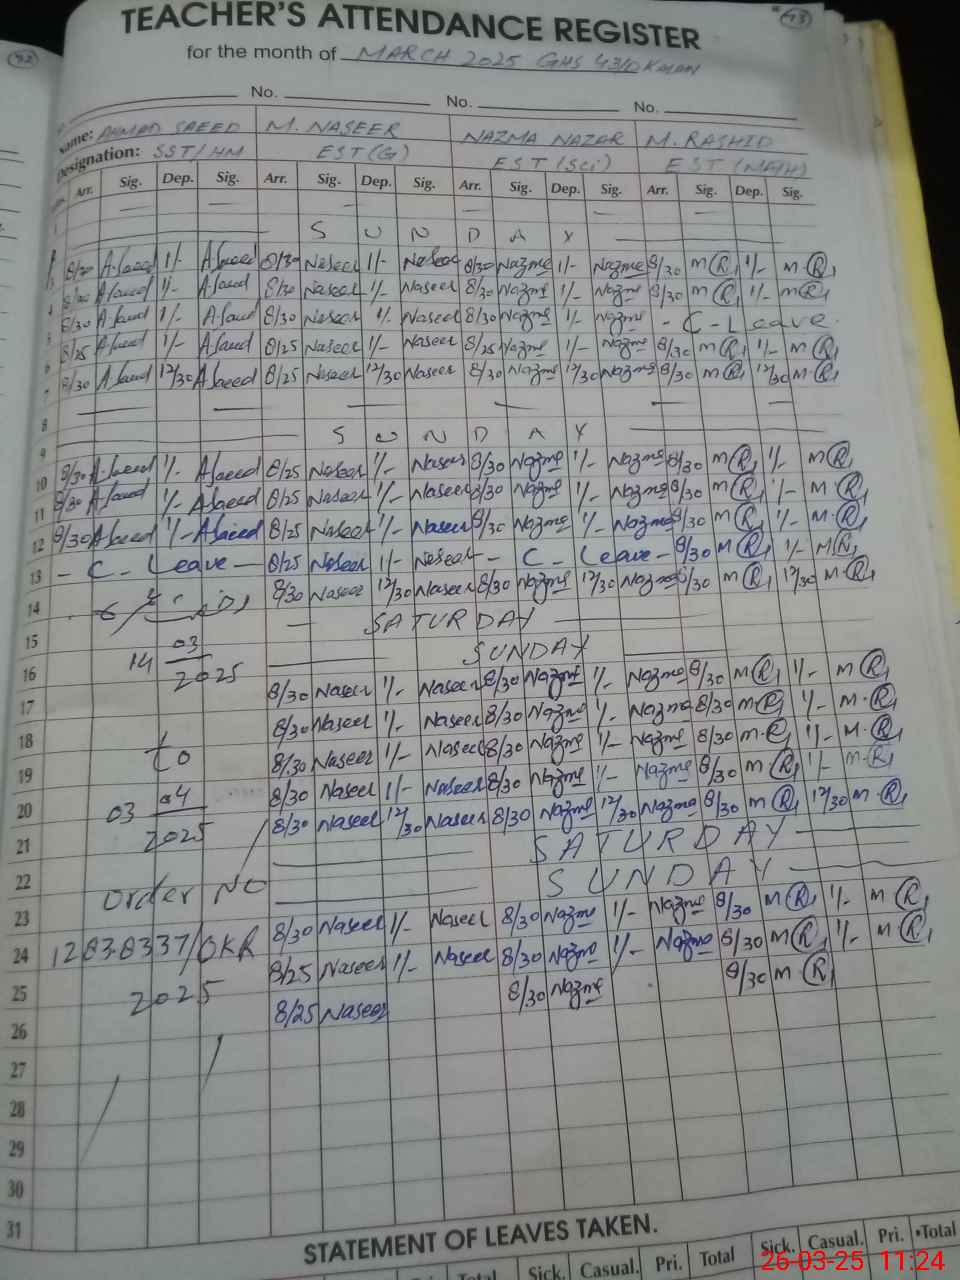 93
92
TEACHER'S ATTENDANCE REGISTER
for the month of MARCH 2025 GHS 43/D
No. No. No.
Name: AHMAD SAEED M. NASEER NAZMA NAZAR M. RASHID
Designation: SST/HM EST (G) EST (Sci) EST (MATH)
Arr. Sig. Dep. Sig. Arr. Sig. Dep. Sig. Arr. Sig. Dep. Sig. Arr. Sig. Dep. Sig.
1
S U N D A Y
8/30 A.Saeed 1/- A.Saeed 8/30 Naseer 1/- Naseer 8/30 Nazma 1/- Nazma 8/30 M (R) 1/- M (R)
4 8/30 A.Saeed 1/- A.Saeed 8/30 Naseer 1/- Naseer 8/30 Nazma 1/- Nazma 8/30 M (R) 1/- M (R)
5 8/30 A.Saeed 1/- A.Saeed 8/30 Naseer 1/- Naseer 8/30 Nazma 1/- Nazma - C - Leave.
6 8/25 A.Saeed 1/- A.Saeed 8/25 Naseer 1/- Naseer 8/25 Nazma 1/- Nazma 8/30 M (R) 1/- M (R)
7 8/30 A.Saeed 12/30 A.Saeed 8/25 Naseer 12/30 Naseer 8/30 Nazma 12/30 Nazma 8/30 M (R) 12/30 M.(R)
8
9 S U N D A Y
10 8/30 A.Saeed 1/- A.Saeed 8/25 Naseer 1/- Naseer 8/30 Nazma 1/- Nazma 8/30 M (R) 1/- M (R)
11 8/30 A.Saeed 1/- A.Saeed 8/25 Naseer 1/- Naseer 8/30 Nazma 1/- Nazma 8/30 M (R) 1/- M.(R)
12 8/30 A.Saeed 1/- A.Saeed 8/25 Naseer 1/- Naseer 8/30 Nazma 1/- Nazma 8/30 M (R) 1/- M.(R)
13 - C - Leave - 8/25 Naseer 1/- Naseer - C - Leave - 8/30 M (R) 1/- M (R)
14 8/30 Naseer 12/30 Naseer 8/30 Nazma 12/30 Nazma 8/30 M (R) 12/30 M.(R)
15 SATURDAY
16 14 03 2025 SUNDAY
17 8/30 Naseer 1/- Naseer 8/30 Nazma 1/- Nazma 8/30 M (R) 1/- M (R)
18 to 8/30 Naseer 1/- Naseer 8/30 Nazma 1/- Nazma 8/30 M.(R) 1/- M.(R)
19 8/30 Naseer 1/- Naseer 8/30 Nazma 1/- Nazma 8/30 M.(R) 1/- M.(R)
20 03 04 8/30 Naseer 1/- Naseer 8/30 Nazma 1/- Nazma 8/30 M (R) 1/- M.(R)
21 2025 8/30 Naseer 12/30 Naseer 8/30 Nazma 12/30 Nazma 8/30 M (R) 12/30 M.(R)
22 SATURDAY
23 Order No SUNDAY
24 1283-8337/OKR 8/30 Naseer 1/- Naseer 8/30 Nazma 1/- Nazma 8/30 M (R) 1/- M (R)
25 2025 8/25 Naseer 1/- Naseer 8/30 Nazma 1/- Nazma 8/30 M (R) 1/- M (R)
26 8/25 Naseer 8/30 Nazma 8/30 M (R)
27
28
29
30
31
STATEMENT OF LEAVES TAKEN.
Total Sick. Casual. Pri. Total Sick. Casual. Pri. Total
26-03-25 11:24